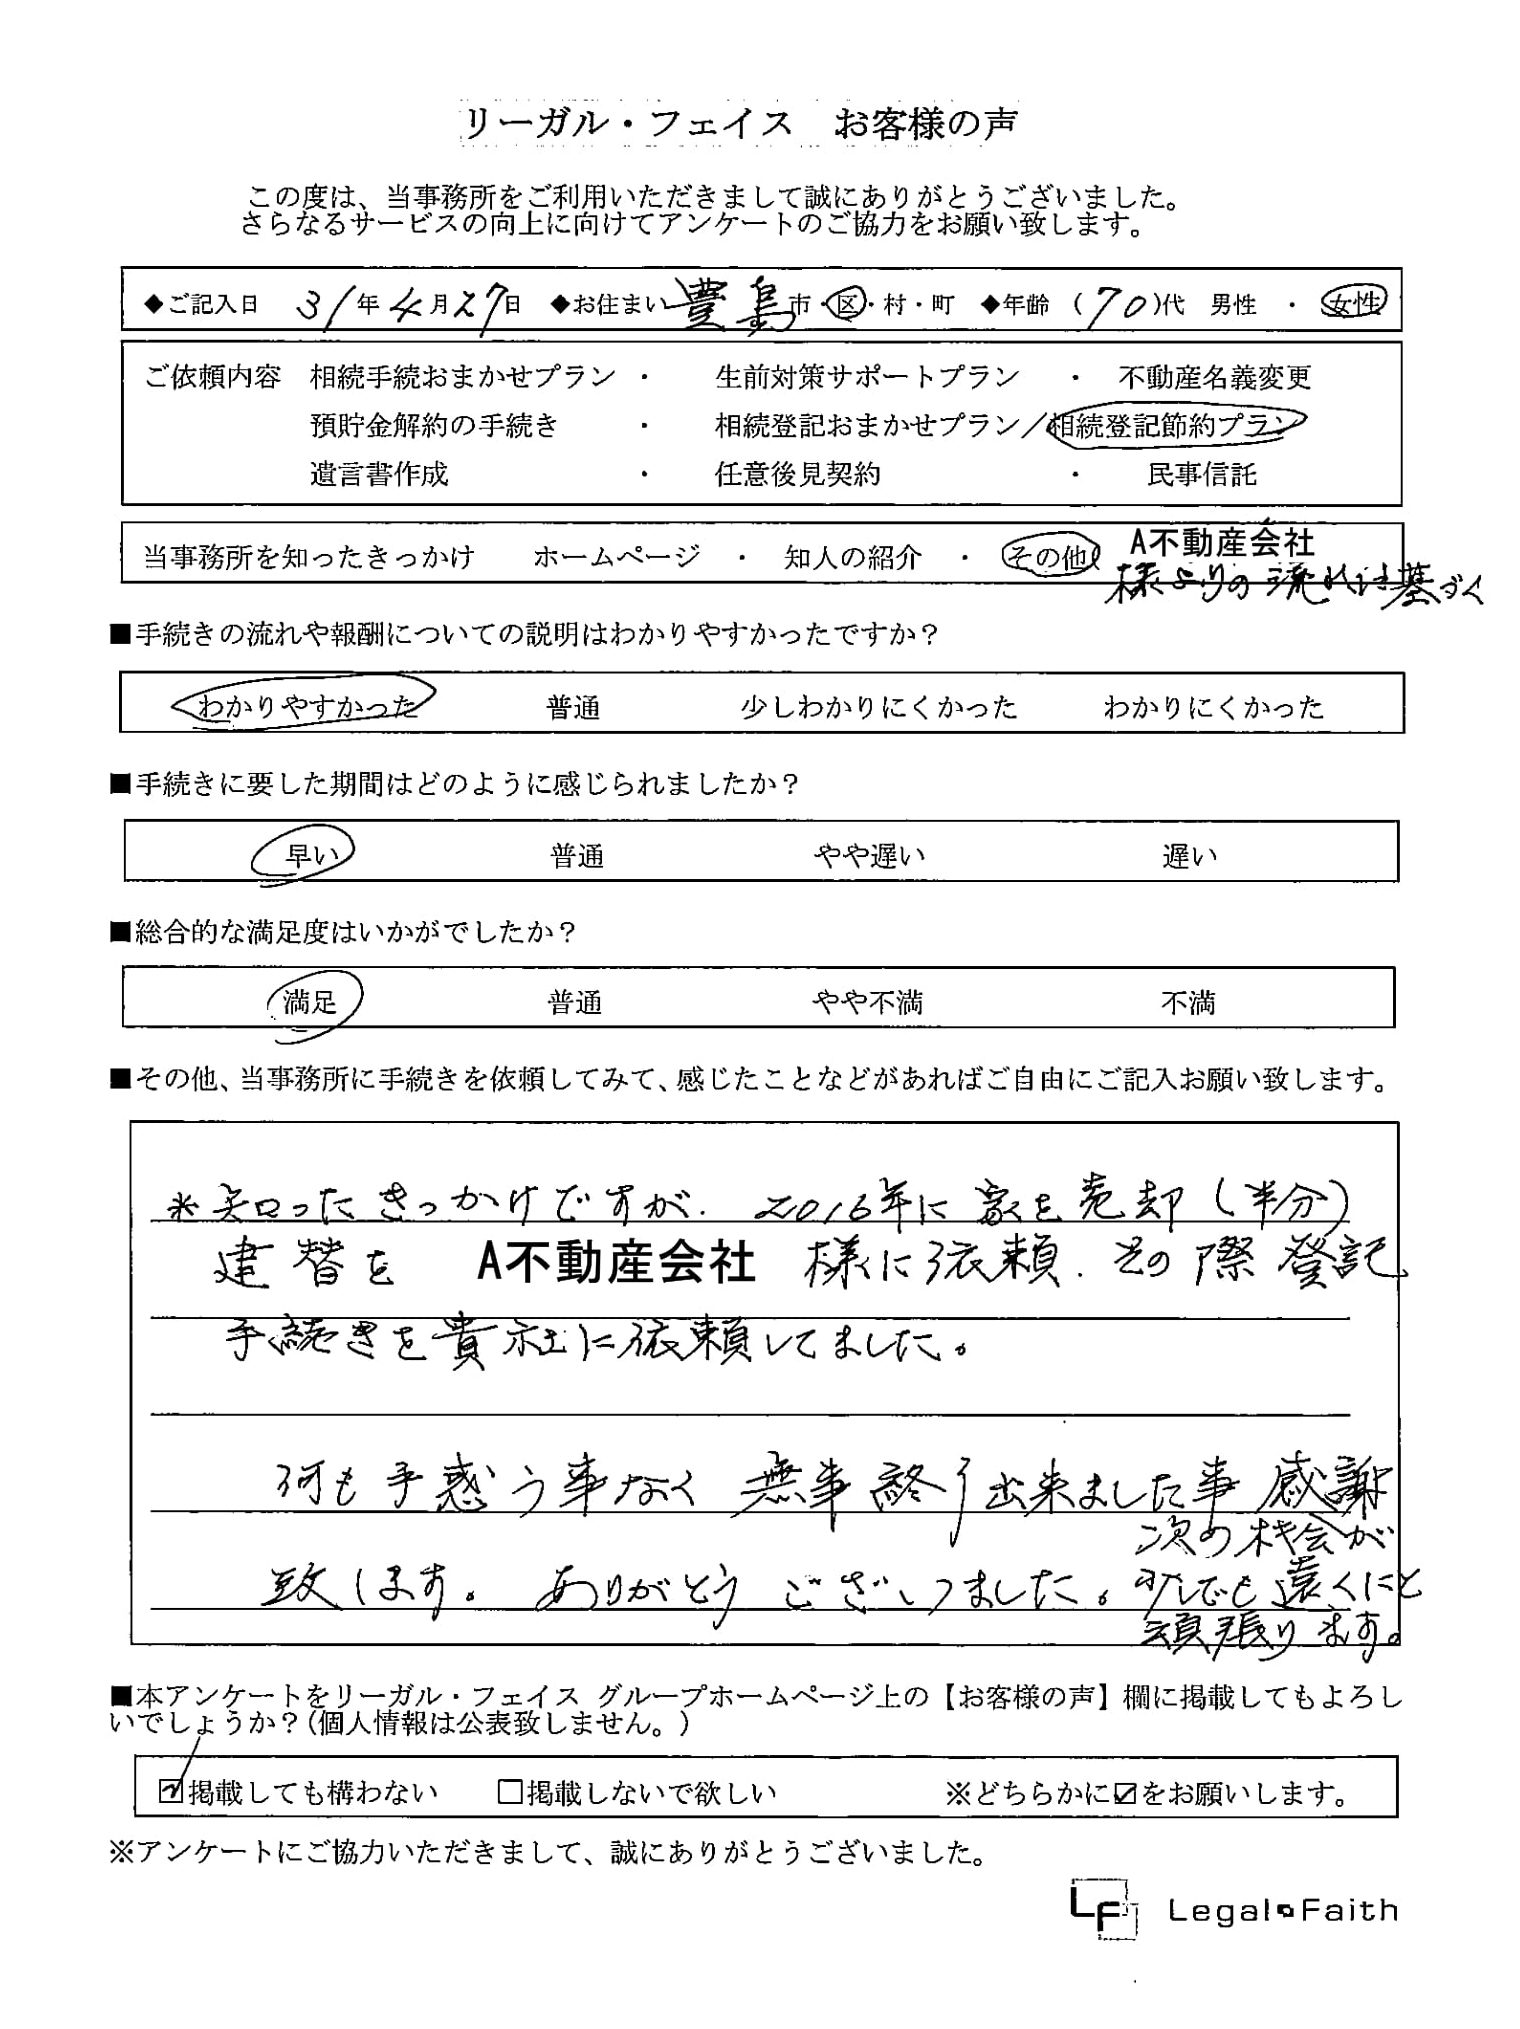 リーガル・フェイス　お客様の声
この度は、当事務所をご利用いただきまして誠にありがとうございました。
さらなるサービスの向上に向けてアンケートのご協力をお願い致します。
◆ご記入日　31年4月27日　◆お住まい 豊島 市・区・村・町　◆年齢（70）代　男性　・　女性
ご依頼内容　相続手続おまかせプラン　・　生前対策サポートプラン　・　不動産名義変更
預貯金解約の手続き　・　相続登記おまかせプラン／相続登記節約プラン
遺言書作成　・　任意後見契約　・　民事信託
当事務所を知ったきっかけ　ホームページ　・　知人の紹介　・　その他（　A不動産会社
様よりの流れに基づく
■手続きの流れや報酬についての説明はわかりやすかったですか？
わかりやすかった　普通　少しわかりにくかった　わかりにくかった
■手続きに要した期間はどのように感じられましたか？
早い　普通　やや遅い　遅い
■総合的な満足度はいかがでしたか？
満足　普通　やや不満　不満
■その他、当事務所に手続きを依頼してみて、感じたことなどがあればご自由にご記入お願い致します。
＊知ったきっかけですが、2016年に家を売却（半分）
建替を　A不動産会社　様に依頼、その際登記
手続きを貴社に依頼してました。
何も手惑う事なく　無事終了出来ました事　感謝
致します。　ありがとうございました。
次の機会が
少しでも遠くにと
頑張ります。
■本アンケートをリーガル・フェイス グループホームページ上の【お客様の声】欄に掲載してもよろし
いでしょうか？（個人情報は公表致しません。）
☑掲載しても構わない　□掲載しないで欲しい　※どちらかに☑をお願いします。
※アンケートにご協力いただきまして、誠にありがとうございました。
LF Legal Faith